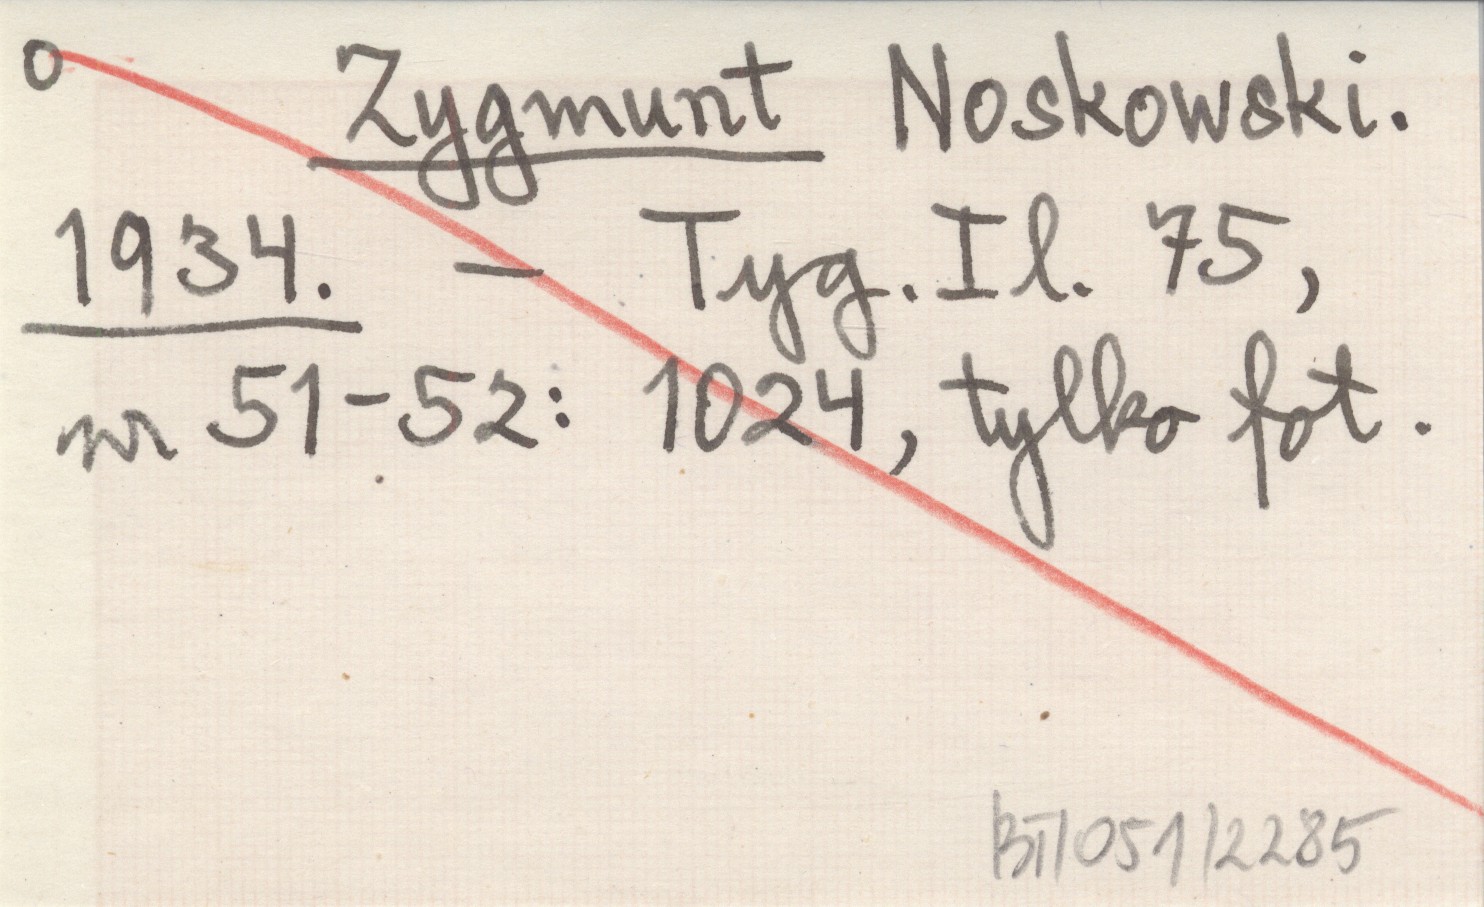 o Zygmunt Noskowski.
1934. – Tyg. Il. 75,
nr 51-52: 1024, tylko fot.
BT/051/2285